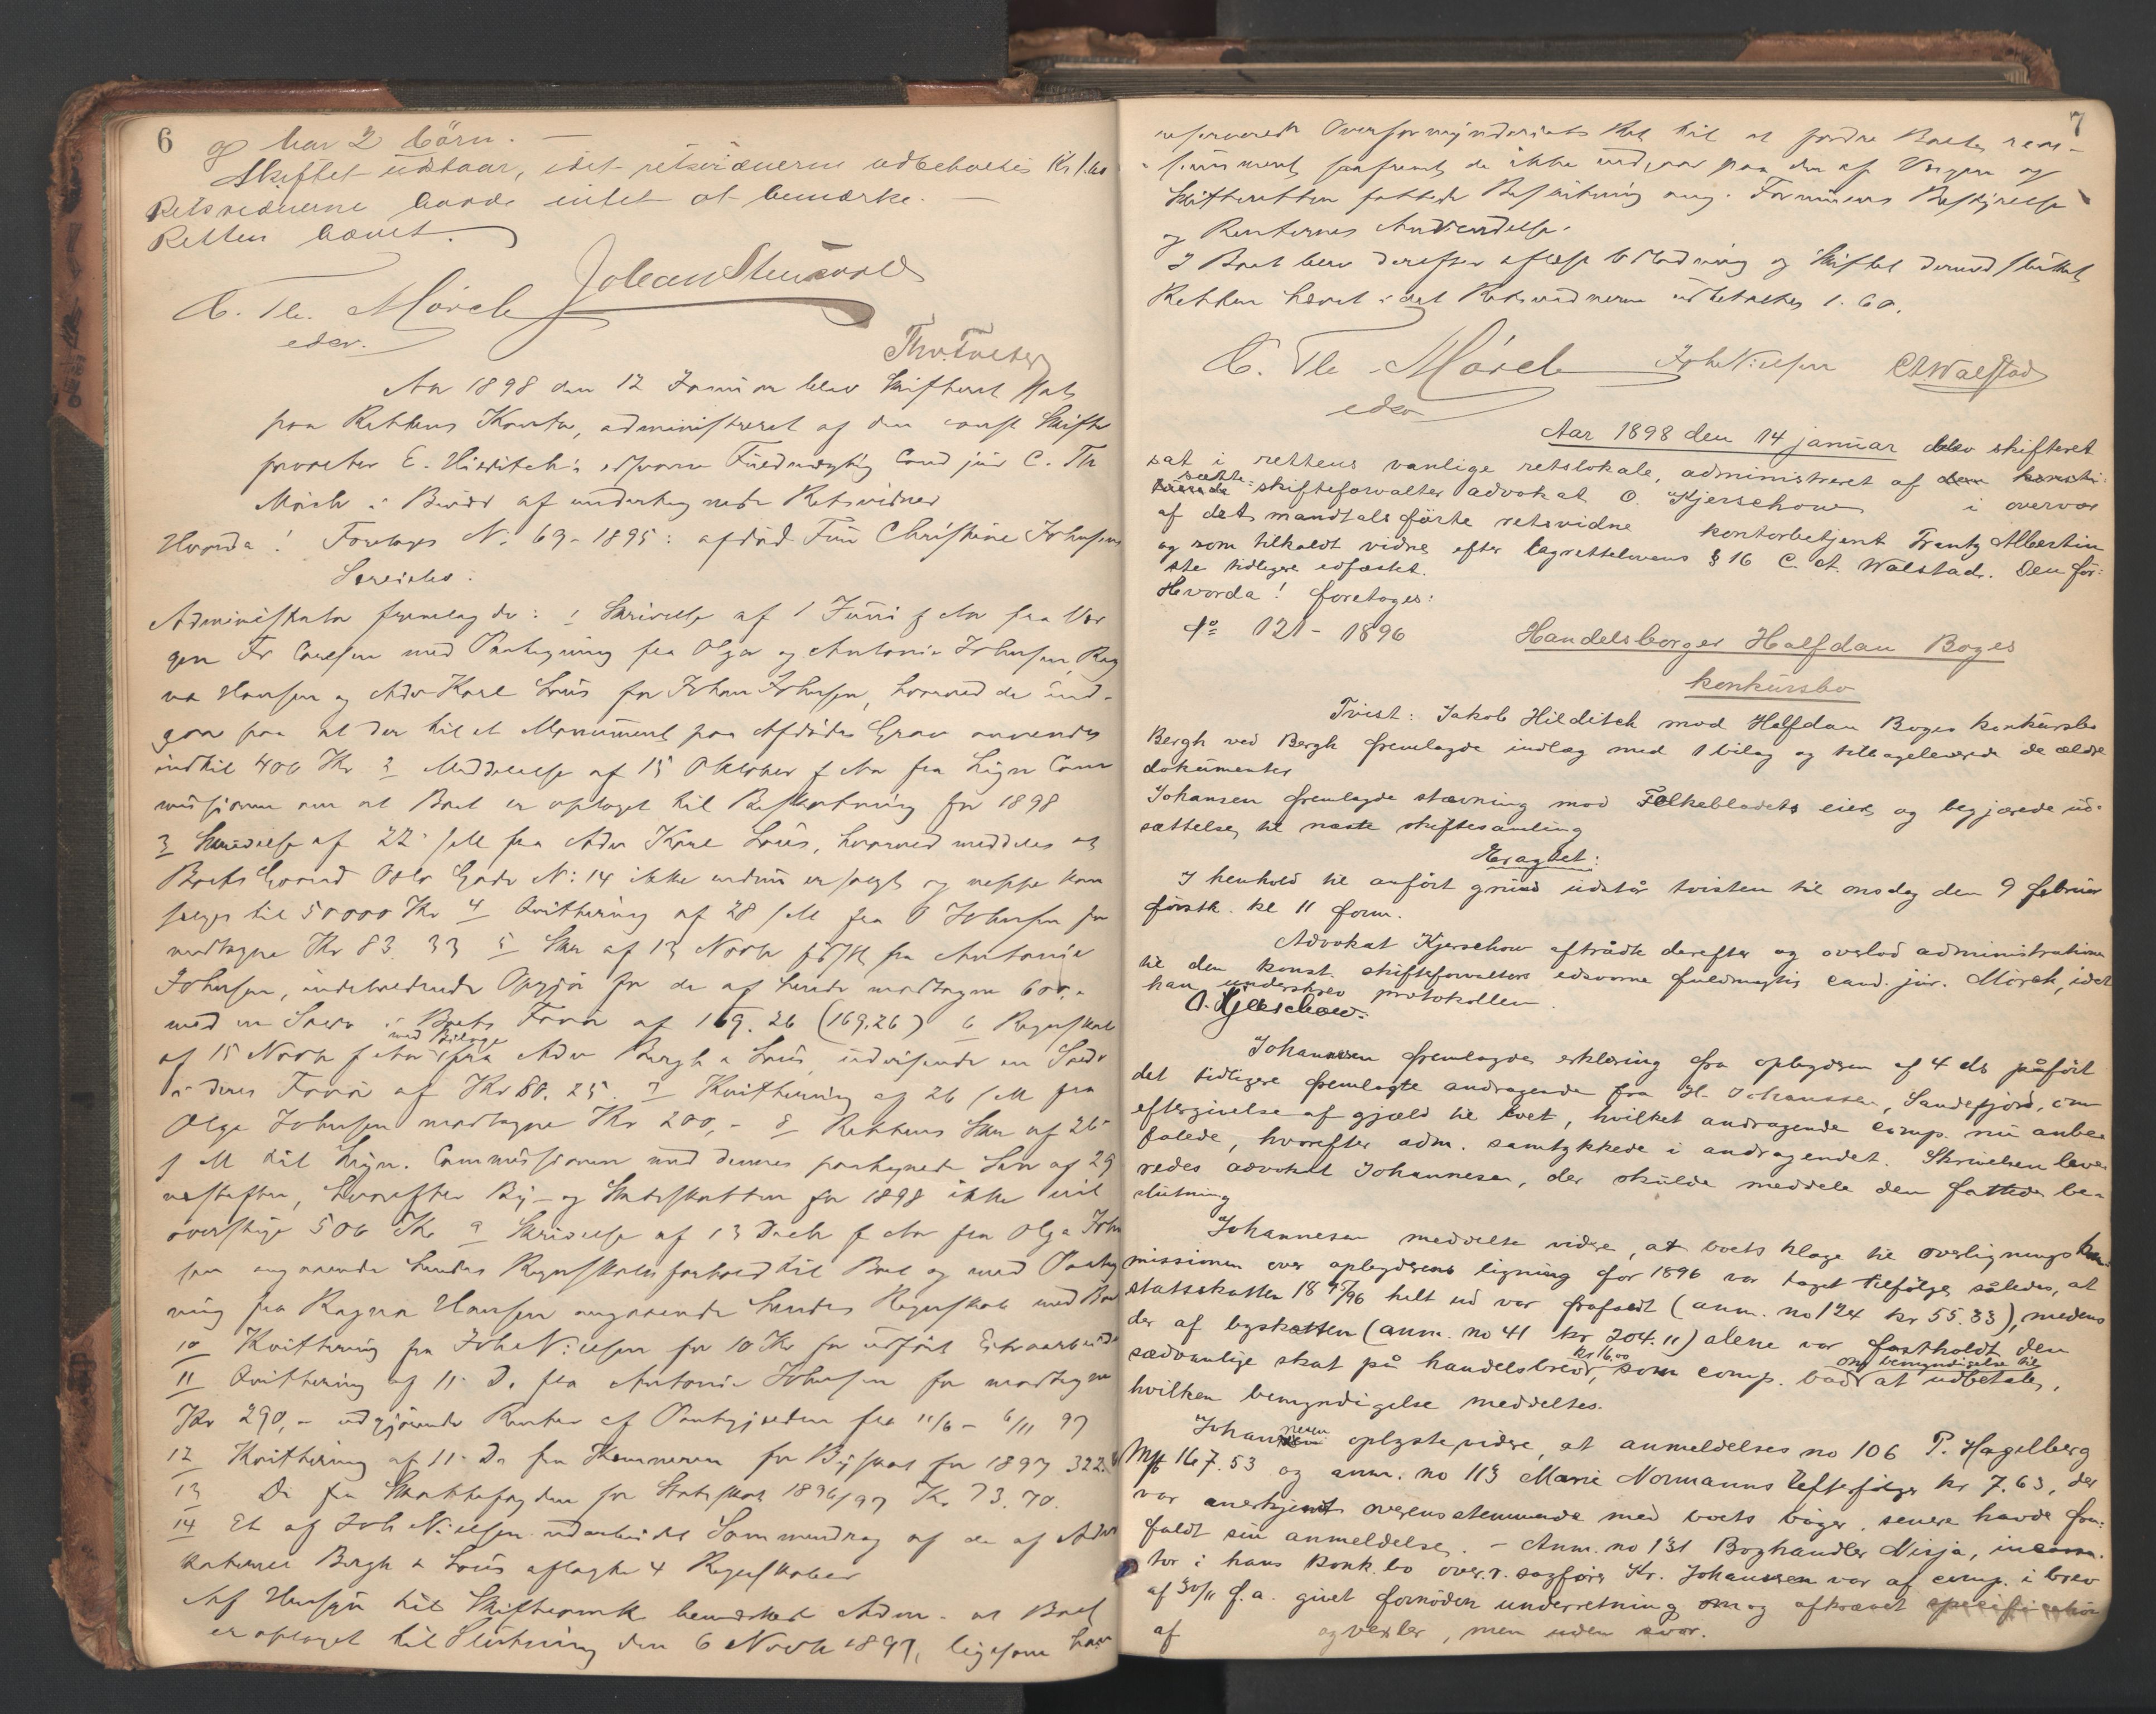 6
og har 2 börn. —
Skiftet udstaar, idet retsvidnerne udbetaltes Kr 1.60
Retsvidnerne havde intet at bemærke. —
Retten hævet.
Johan Stensvold
C. Th. Mörch
edsv.
Aar 1898 den 12 Januar blev Skifteret sat
paa Rettens Kontor, administreret af den const Skifte
forvalter E. Hilditch's edsvorne Fuldmægtig Cand jur C. Th
Mörch i Overvær af undertegnede Retsvidner
Hvorda! Foretages No 69-1895: afdöd Fru Christine Johnsens
Administrator fremlagde: 1 Skrivelse af 1 Juni f Aar fra Vær
gen Fr Carlsen med Paategning fra Olga og Antonie Johnsen, Rag
na Hansen og Adv Karl Lous for Johan Johnsen, hvorved de ind-
gaar paa at der til et Monument paa Afdödes Grav anvendes
indtil 400 Kr 2 Meddelelse af 15 Oktober f Aar fra Lign Com
missionen om at Boet er optaget til Beskatning for 1898
3 Skrivelse af 22 s/M fra Adv Karl Lous, hvorved meddeles at
Boets Gaard Oslo Gade No 14 ikke endnu er solgt og neppe kan
sælges til 50000 Kr 4 Qvittering af 28 s/M fra O Johnsen for
modtagne Kr 83. 33 5 Skr af 13 Novbr f Aar fra Antonie
Johnsen, indeholdende Opgjör for de af hende modtagne 600,-
med en Saldo i Boets Favör af 169. 26 (169.26) 6 Regnskab
af 15 Novbr f Aar med Bilage fra Adv Bergh & Lous udvisende en Saldo
i deres Favör af Kr 80. 25. 7 Kvittering af 26 s/M fra
Olga Johnsen modtagne Kr 200,- 8 Rettens Skr af 26
s M til Lign. Commissionen med dennes paategnede Svar af 29
næstefter, hvorefter By- og Statsskatten for 1898 ikke vil
overstige 506 Kr 9 Skrivelse af 13 Decbr f Aar fra Olga John
sen angaaende hendes Regnskabsforhold til Boet og med Paateg
ning fra Ragna Hansen angaaende hendes Regnskab med Boet
10 Kvittering fra Joh Nielsen for 10 Kr for udfört Extraarbeide
11 Qvittering af 11 D. fra Antonie Johnsen for modtagne
Kr 290,- udgjörende Renter af Pantegjælden fra 11/6 - 6/11 97
12 Kvittering af 11 D. fra Kemneren for Byskat for 1897 322.
13 Do fra Skattefogden for Statsskat 1896/97 Kr 73. 70.
14 Et af Joh Nielsen udarbeidet Sammendrag af de af Advo
katerne Bergh & Lous aflagte 4 Regnskaber
Af Hensyn til Skifteværk bemærket Adm. at Boet
er optaget til Slutning den 6 Novbr 1897, ligesom han
7
reserverede Overformynderiets Ret til at fordre Boets reas-
sumeret saafremt de ikke indgaar paa den af Værgen og
Skifteretten fattede Beslutning ang. Formuens Bestyrelse
og Renternes Anvendelse.
I Boet blev derefter aflæst Udlodning og Skiftet dermed sluttet
Retten hævet idet Retsvidnerne udbetaltes 1. 60.
C. Th. Mörch Joh Nielsen C A Walstad
edsv
Aar 1898 den 14 januar blev skifteret
sat i rettens vanlige retslokale, administreret af den konsti-
satte skifteforvalter advokat O. Kjerschow i overvær
af det mandtalsförte retsvidne kontorbetjent Frantz Albertin
og som tilkaldt vidne efter lagrettelovens § 16 C. A. Walstad. Den för-
ste tidligere edfæstet.
Hvorda! foretoges:
No 121 - 1896 Handelsborger Halfdan Boges
konkursbo
Tvist: Jakob Hilditch mod Halfdan Boges konkursbo
Bergh ved Bergh fremlagde indlæg med 1 bilag og tilbageleverede de ældre
dokumenter
Johansen fremlagde stævning mod Folkebladets eiere og begjærede ud-
sættelse til næste skiftesamling
Eragtet:
I henhold til anfört grund udstår tvisten til onsdag den 9 februar
förstk. kl 11 form.
Advokat Kjerschow aftrådte derefter og overlod administrationen
til den konst. skifteforvalters edsvorne fuldmægtig cand. jur. Mörch, idet
han underskrev protokollen.
O. Kjerschow.
Johannesen fremlagde erklæring fra opbyderen af 4 ds påfört
det tidligere fremlagte andragende fra H. Johannsen, Sandefjord, om
eftergivelse af gjæld til boet, hvilket andragende comp. nu anbe-
falede, hvorefter adm. samtykkede i andragendet. Skrivelsen leve-
redes advokat Johannesen, der skulde meddele den fattede be-
slutning
Johannesen meddelte videre, at boets klage til overlignings kom-
missionen over opbyderens ligning for 1896 var taget tilfölge således, at
statsskatten 18 95/96 helt ud var frafaldt (anm. no 124 kr 55.33), medens
der af byskatten (anm. no 41 kr. 204.11) alene var fastholdt den
sædvanlige skat på handelsbrev, kr 16.00 som comp. bad om bemyndigelse til at udbetale,
hvilken bemyndigelse meddeltes.
Johannesen oplyste videre, at anmeldelses no 106 P. Hagelberg
Mk 167.53 og anm. no 113 Marie Normanns Eftefölger kr 7.63, der
var anerkjent overensstemmende med boets böger, senere havde fra-
faldt sin anmeldelse. - Anm. no 131 Boghandler Nisja,
tor i hans konk.bo over.r.sagförer Kr. Johanssen var af comp. i brev
af 30/11 f.a. givet fornöden underretning om og afkrævet
af og vexler, men uden svar.